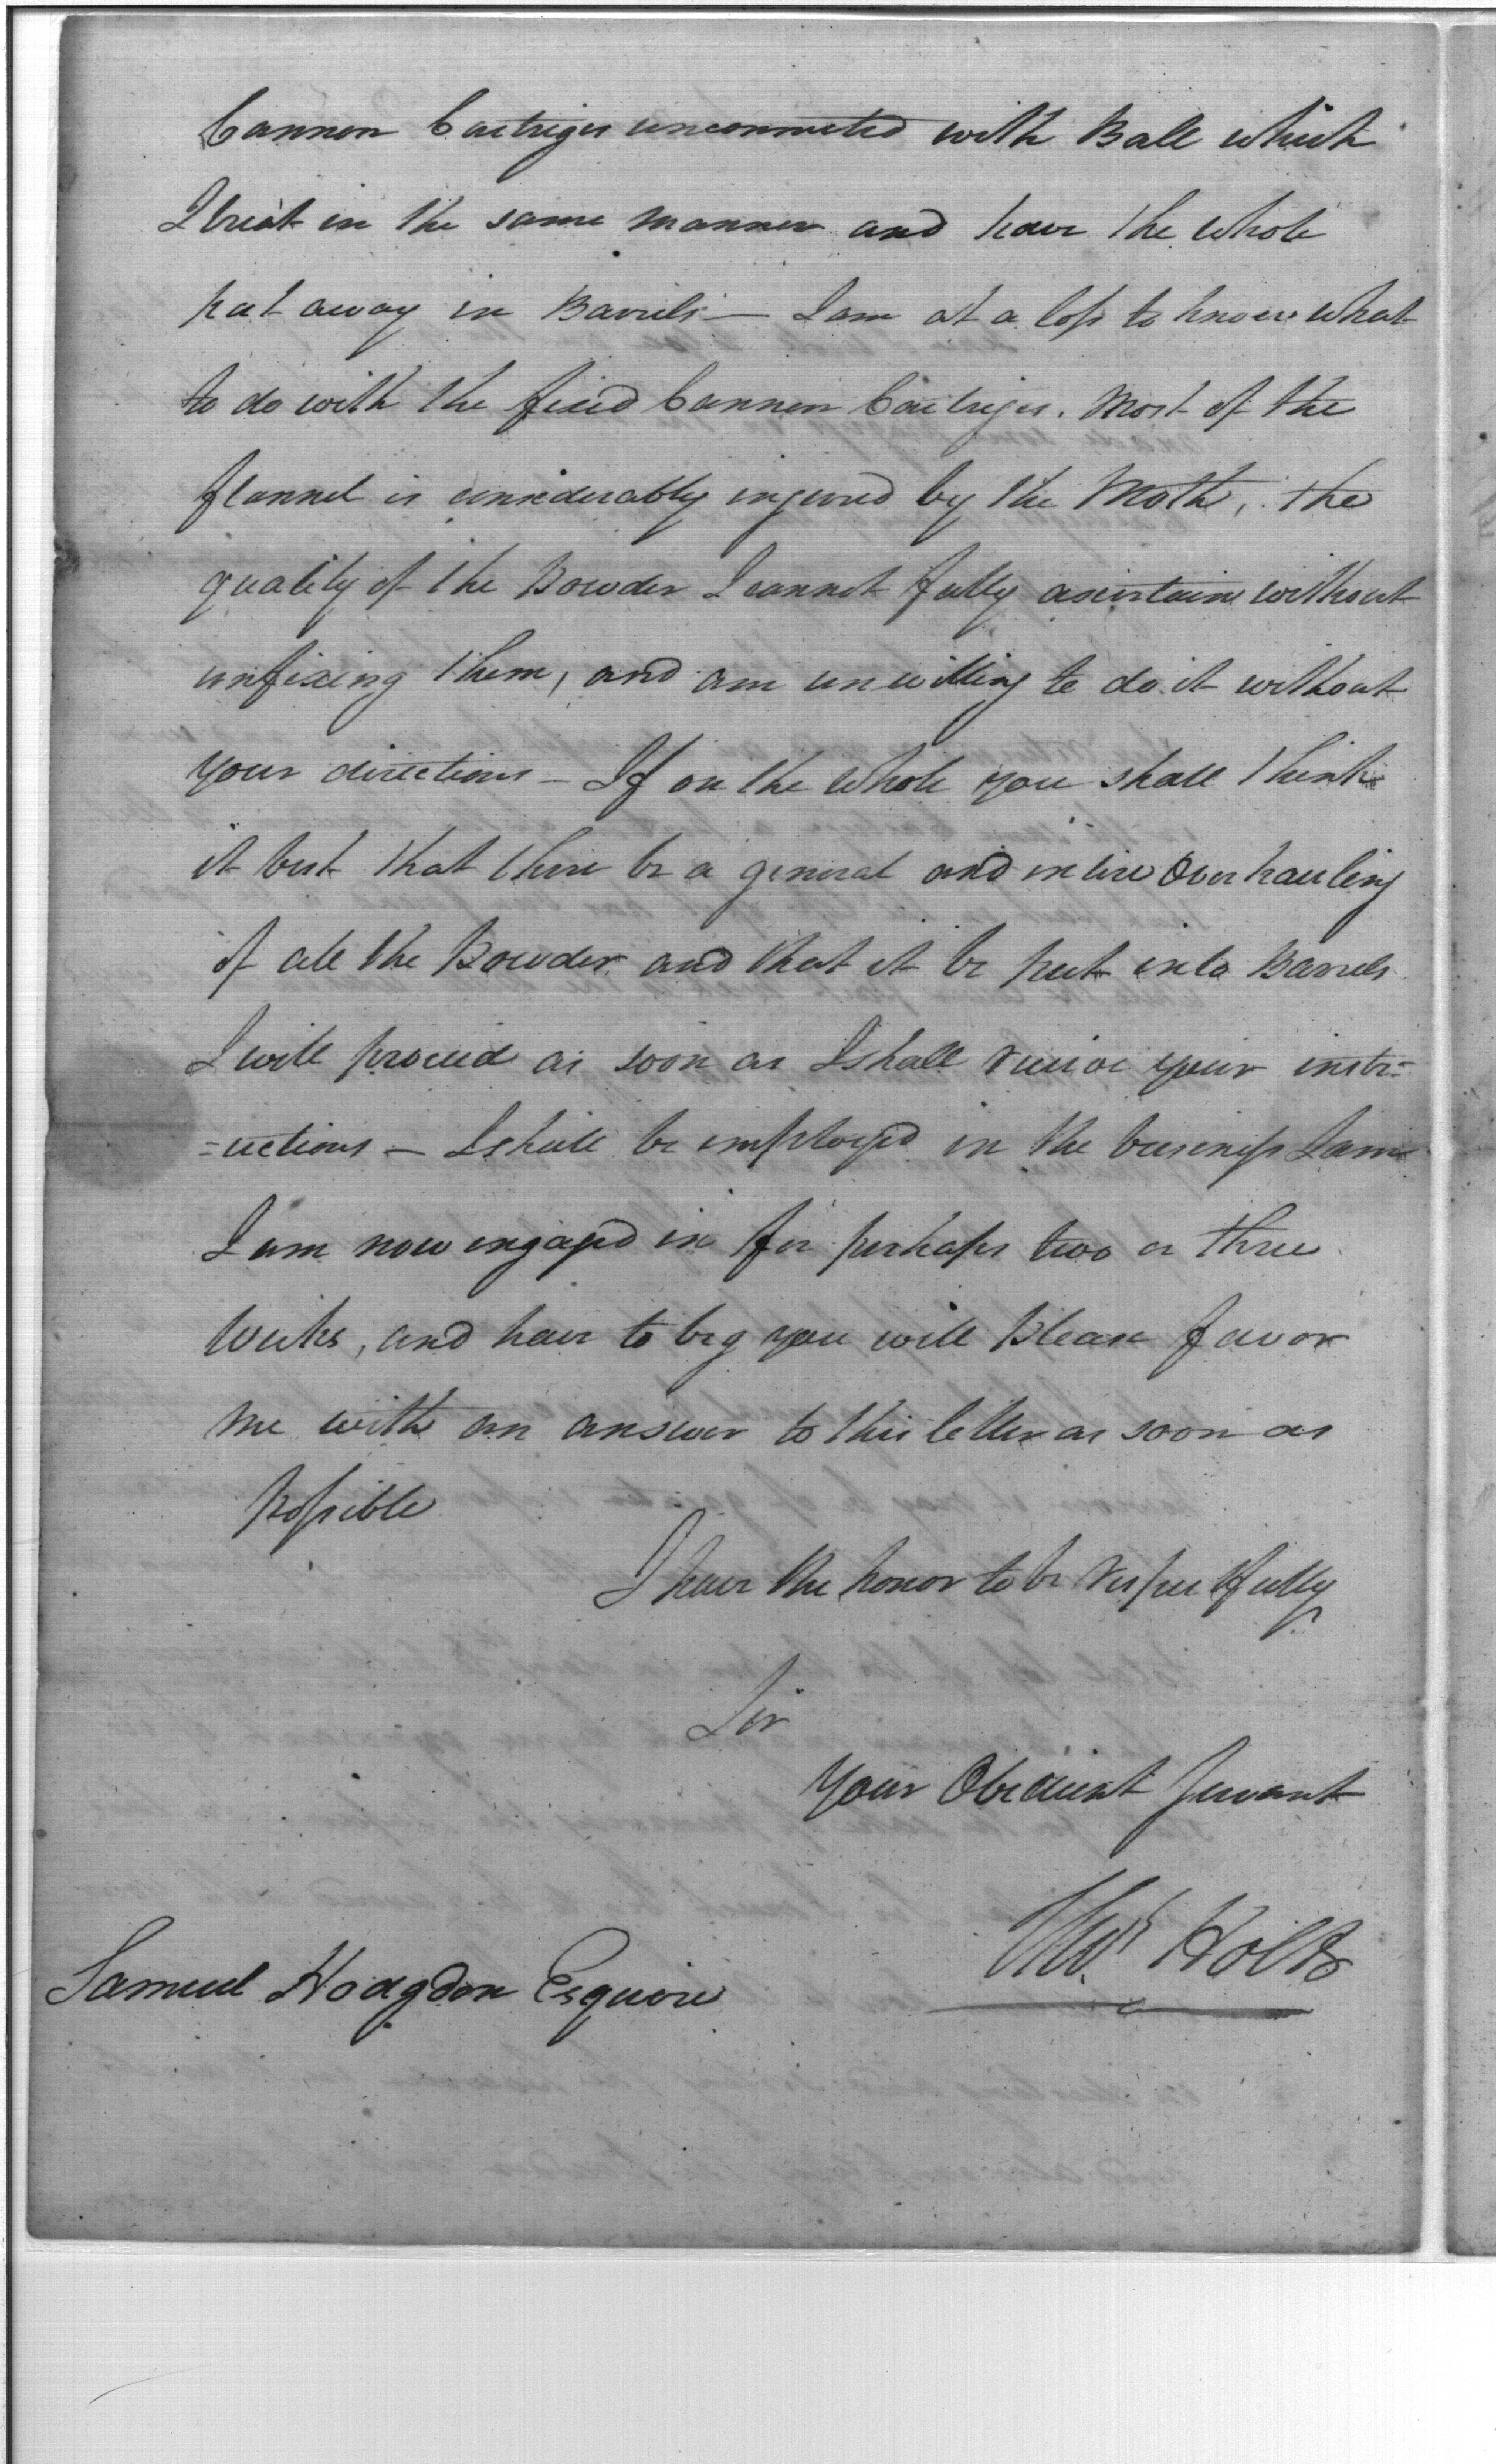 Cannon Cartriges unconnected with Ball which
I treat in the same manner and have the whole
put away in Barrels — I am at a loss to know what
to do with the fixed Cannon Cartriges. Most of the
flannel is considerably injured by the Moth, the
quality of the Powder I cannot fully ascertain without
unfixing them, and am unwilling to do it without
your directions — If on the whole you shall think
it best that there be a general and intire Overhauling
of all the Powder and that it be put into Barrels
I will proceed as soon as I shall receive your instr=
=uctions — I shall be employed in the business I am
I am now engaged in for perhaps two or three
Weeks, and have to beg you will Please favor
me with an answer to this letter as soon as
possible
I have the honor to be respectfully
Sir
your Obedient Servant
Thos. Holt
Samuel Hodgdon Esquire